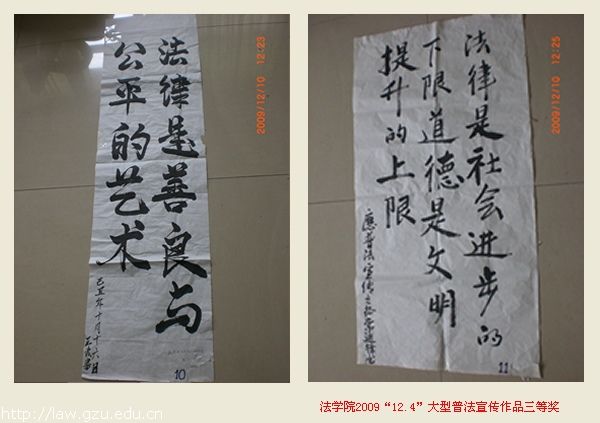 法律是善良与
公平的艺术
己丑年十月十六日
10
2009/12/10 12:23
法律是社会进步的
下限道德是文明
提升的上限
應普法宣传之
11
2009/12/10 12:25
http://law.gzu.edu.cn
法学院2009“12.4”大型普法宣传作品三等奖